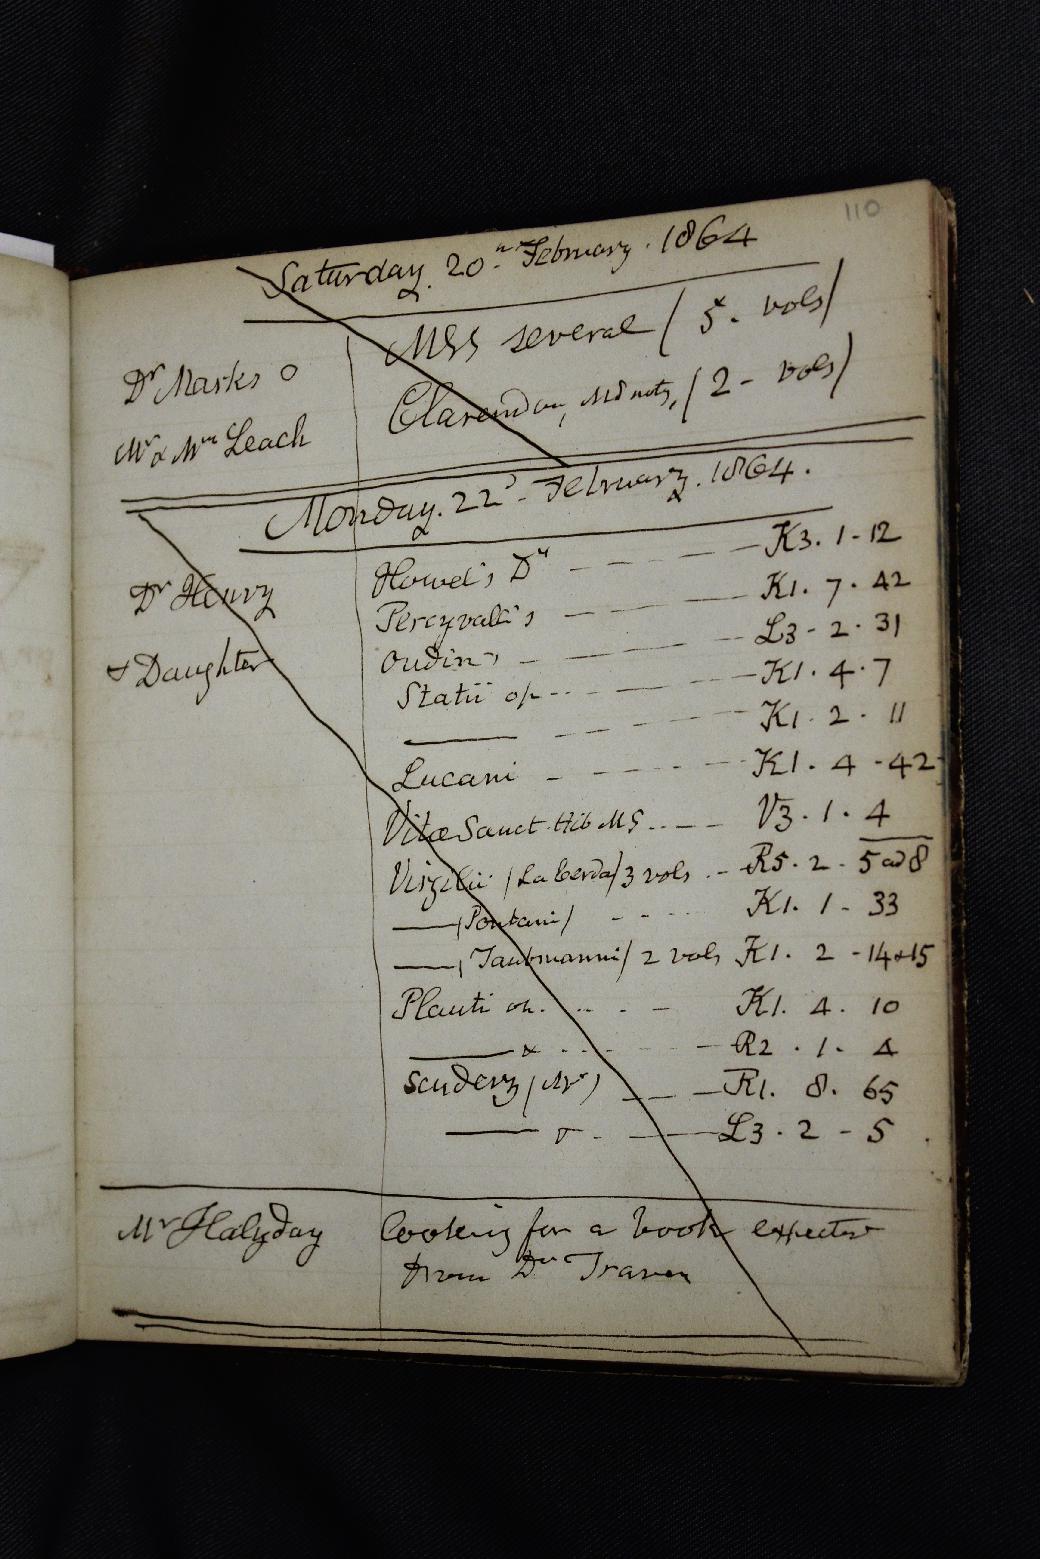 110
Saturday. 20th February. 1864
Dr Marks o MSS several (5. vols)
Mr & Mrs Leach Clarendon, MS notes, (2 - vols)
Monday. 22d - February. 1864.
Dr Henry Howel's Dy - - - K3. 1 - 12
Percyvall's - - - K1. 7. 42
& Daughter Oudin's - - - L3 - 2. 31
Statii op - - - K1. 4. 7
——— - - - K1. 2. 11
Lucani - - - K1. 4 - 42
Vitæ Sanct. Hib MS. - - - V3. 1. 4
Virgilii (La Cerda) 3 vols - - R5. 2. 5 ad 8
——— (Pontani) - - - K1. 1 - 33
——— (Taubmanni) 2 vols K1. 2 - 14 & 15
Plauti op. - - - K1. 4. 10
——— x - - - R2. 1. 4
Scudery (Mr) - - - R1. 8. 65
——— - - - L3. 2 - 5.
Mr Halyday looking for a book expected
from Dr